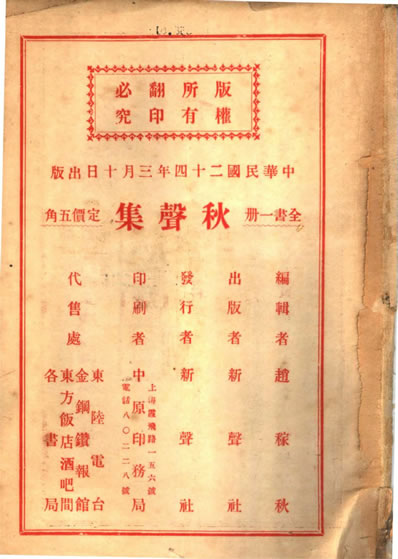 版權所有
翻印必究
中華民國二十四年三月十日出版
全書一册
秋聲集
定價五角
編輯者 趙稼秋
出版者 新聲社
發行者 新聲社
印刷者 中原印務局
上海霞飛路一五六號
電話八〇二二八號
代售處
東陸電台
金鋼鑽報館
東方飯店酒吧間
各書局